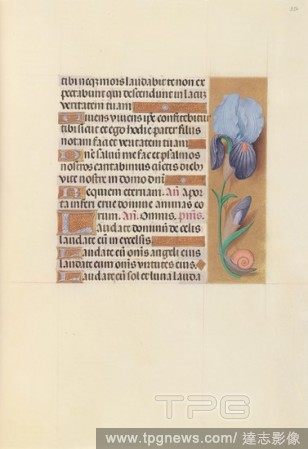 tibi neq; mors laudabit te non ex
pectabunt qui descendunt in lacū
veritatem tuam
Vivens vivens ipse confitebitur
tibi sicut et ego hodie pater filiis
notam faciet veritatem tuam
Dñe salvū me fac et psalmos
nostros cantabimus cūctis dieb;
vite nostre in domo dñi
Requiem eternam. Añ A por
ta inferi erue domine animas eo
rum. Añ. Omnis. p̄mis.
Laudate dominū de celis
laudate eū in excelsis
Laudate eū om̄s angeli eius
laudate eum om̄s virtutes eius.
Laudate eū sol et luna lauda
TPG
www.tpgnews.com/ 達志影像